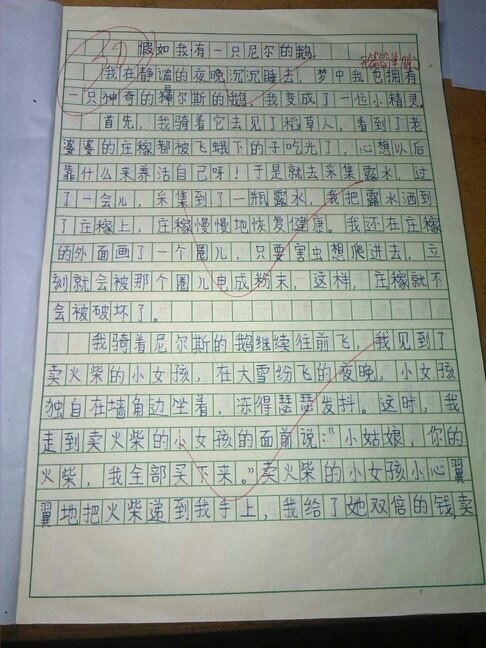 假如我有一只尼尔的鹅
我在静谧的夜晚沉沉睡去，梦中我也拥有
一只神奇的尔斯的鹅，我变成了一位小精灵。
首先，我骑着它去见了稻草人，看到了老
婆婆的庄稼都被飞蛾下的子吃光了，心想以后
靠什么来养活自己呀！于是就去采集露水，过
了一会儿，采集到了一瓶露水，我把露水洒到
了庄稼上，庄稼慢慢地恢复健康。我还在庄稼
的外面画了一个圈儿，只要害虫想爬进去，立
刻就会被那个圈儿电成粉末，这样，庄稼就不
会被破坏了。
我骑着尼尔斯的鹅继续往前飞，我见到了
卖火柴的小女孩，在大雪纷飞的夜晚，小女孩
独自在墙角边坐着，冻得瑟瑟发抖。这时，我
走到卖火柴的小女孩的面前说：“小姑娘，你的
火柴，我全部买下来。”卖火柴的小女孩小心翼
翼地把火柴递到我手上，我给了她双倍的钱，卖